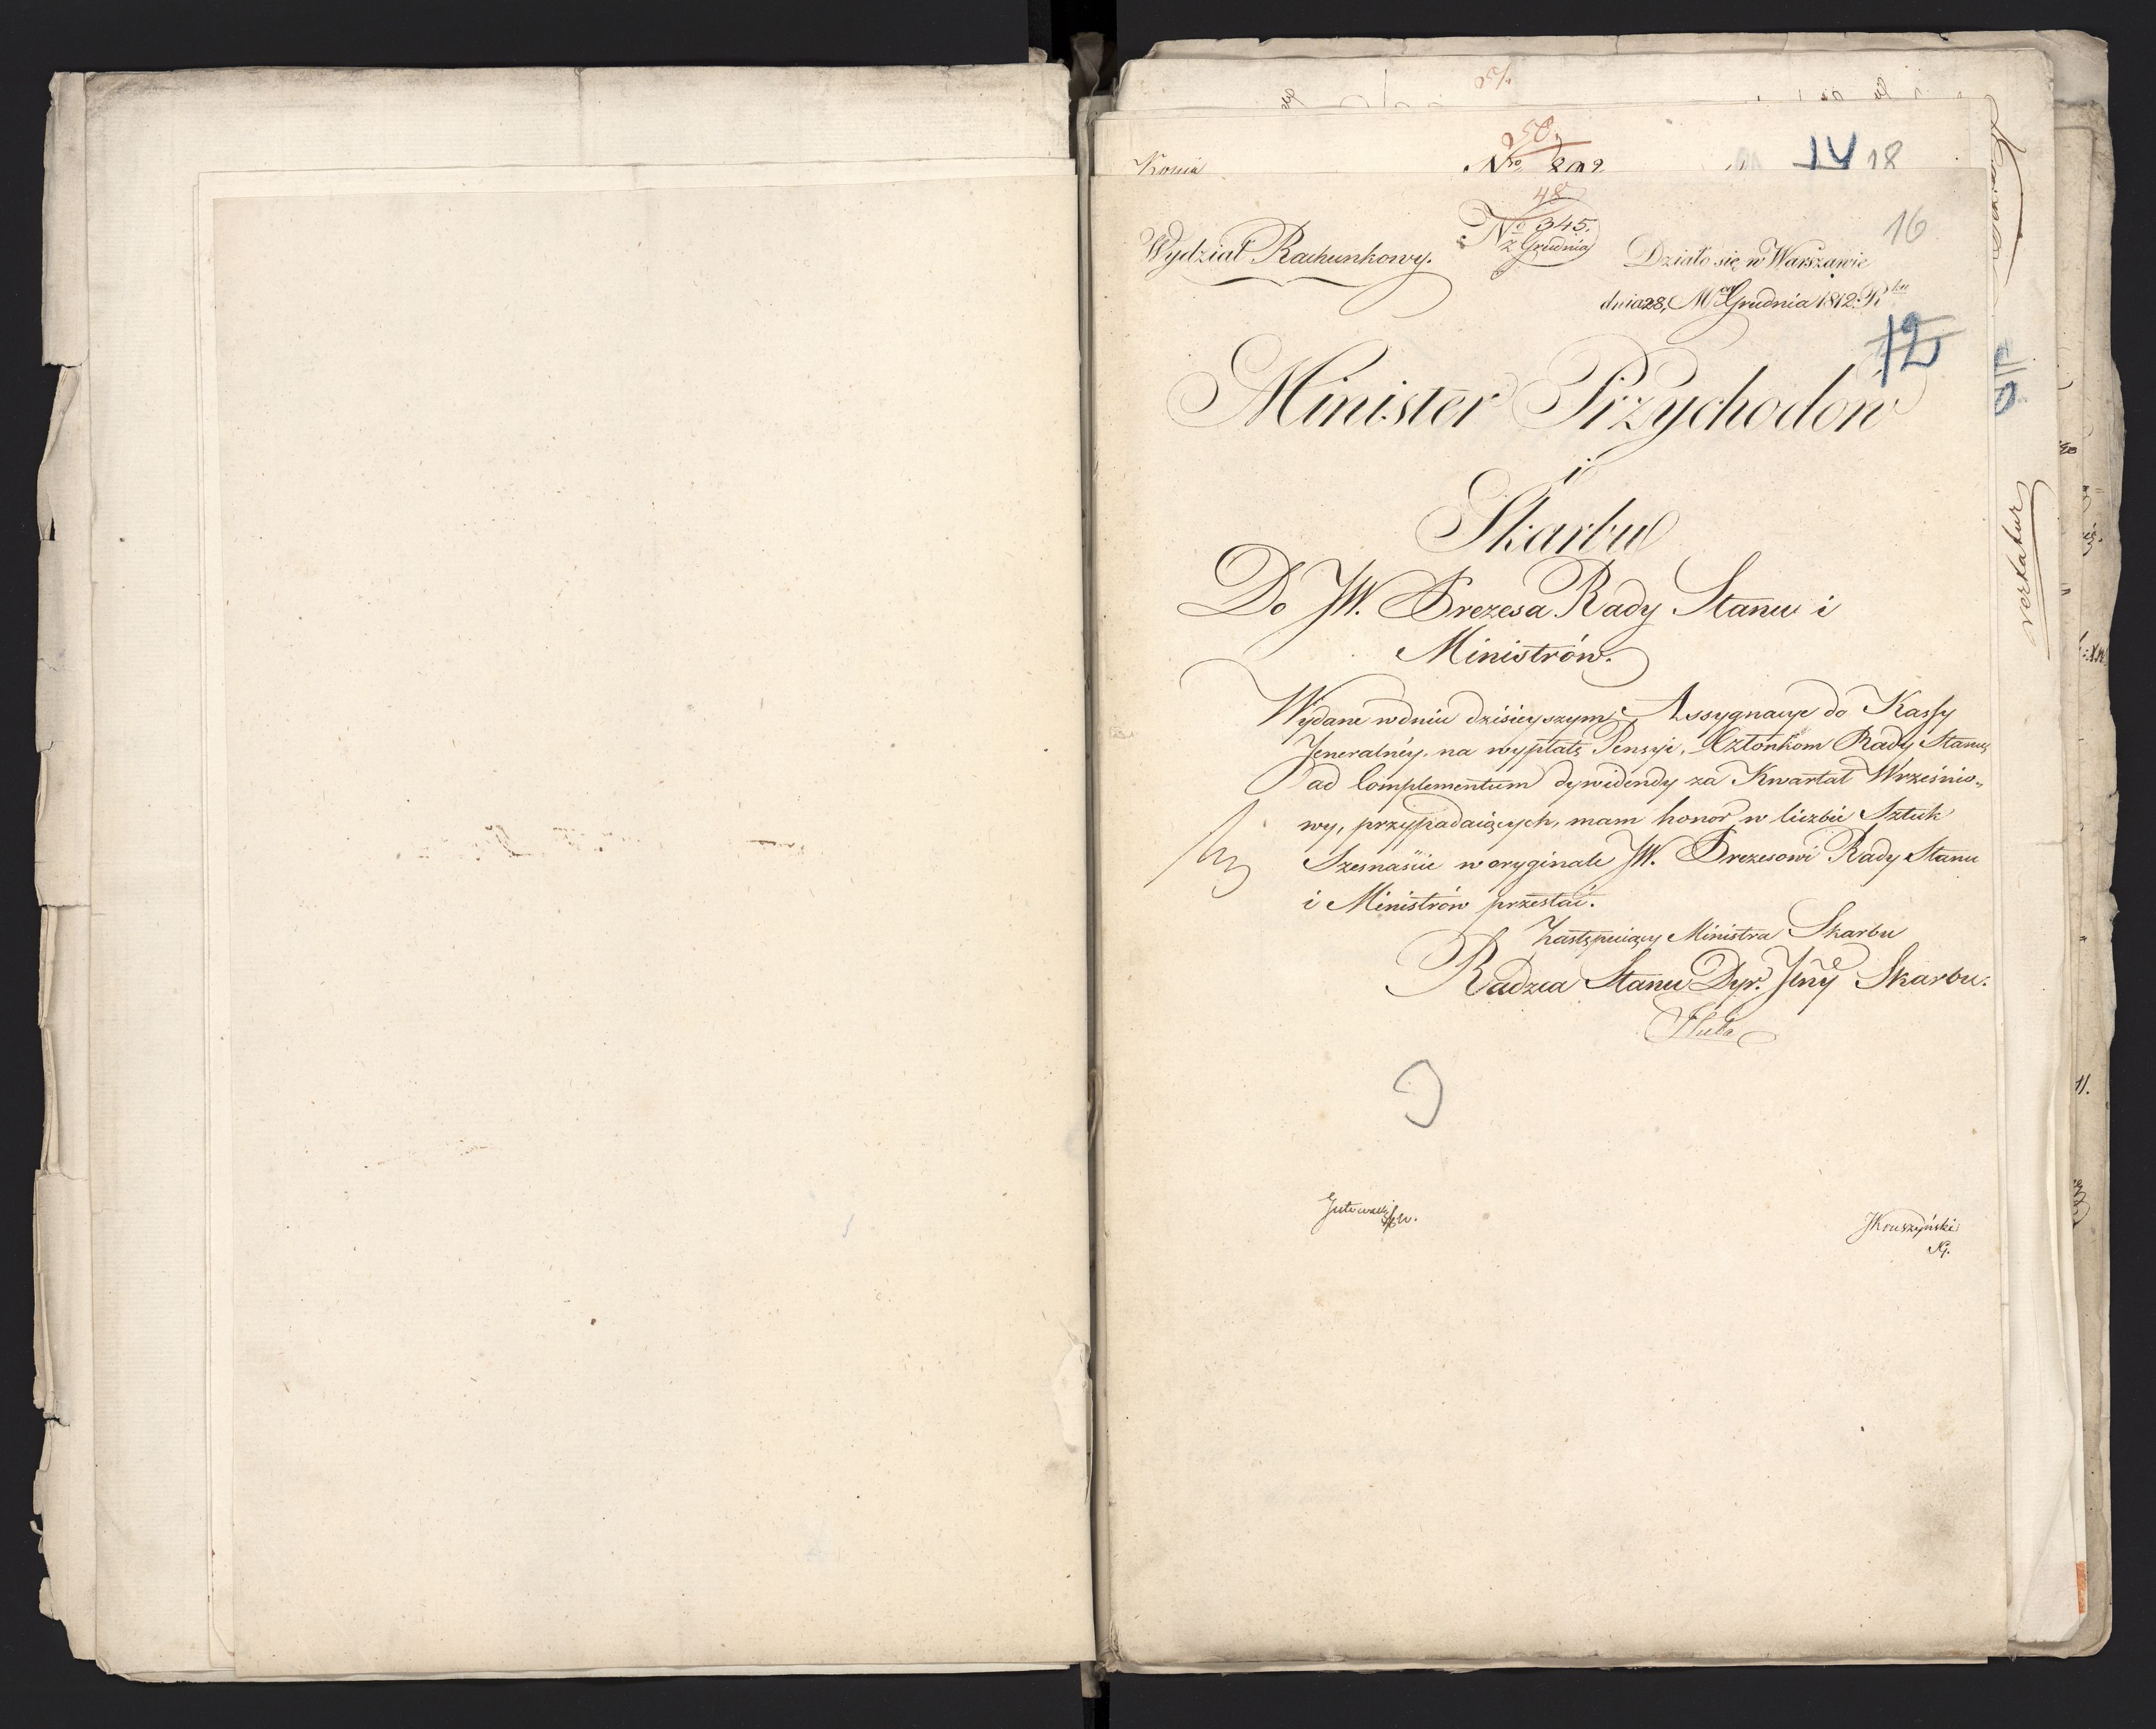 50.
Kopia
IV 18
48
No 345.
z Grudnia
16
Wydział Rachunkowy.
Działo się w Warszawie
dnia 28, Mca Grudnia 1812. Rku
12
Minister Przychodów
i
Skarbu
Do JW. Prezesa Rady Stanu i
Ministrów.
Wydane w dniu dzisieyszym Assygnacye do Kassy
Jeneralnéy, na wypłatę Pensyi, Członkom Rady Stanu,
ad Complementum dywidendy za Kwartał Wrześnio„
wy, przypadaiących, mam honor w liczbie Sztuk
Szesnaście w oryginale JW. Prezesowi Rady Stanu
i Ministrów przesłać.
Zastępuiący Ministra Skarbu
Radzca Stanu Dyr. Jlny Skarbu.
JKruszyński
vertatur